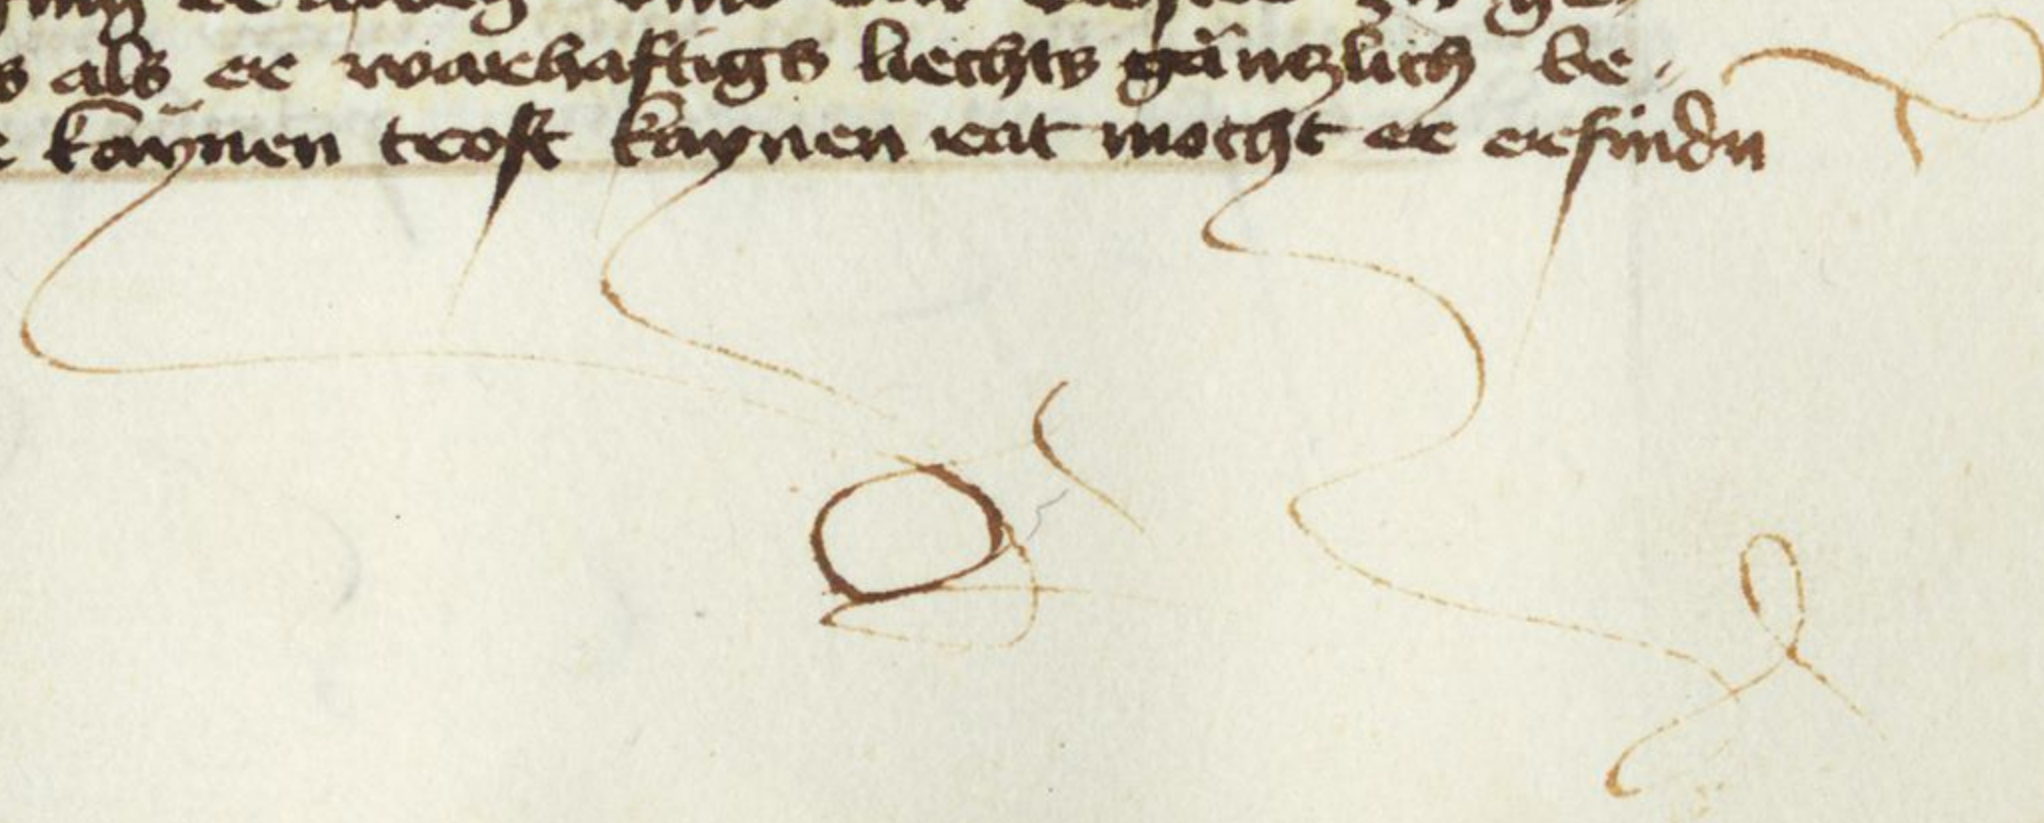 s als er warhaftigs liechts gäntzlich be-
kaÿnen trost kaynen rat mocht er erfindn